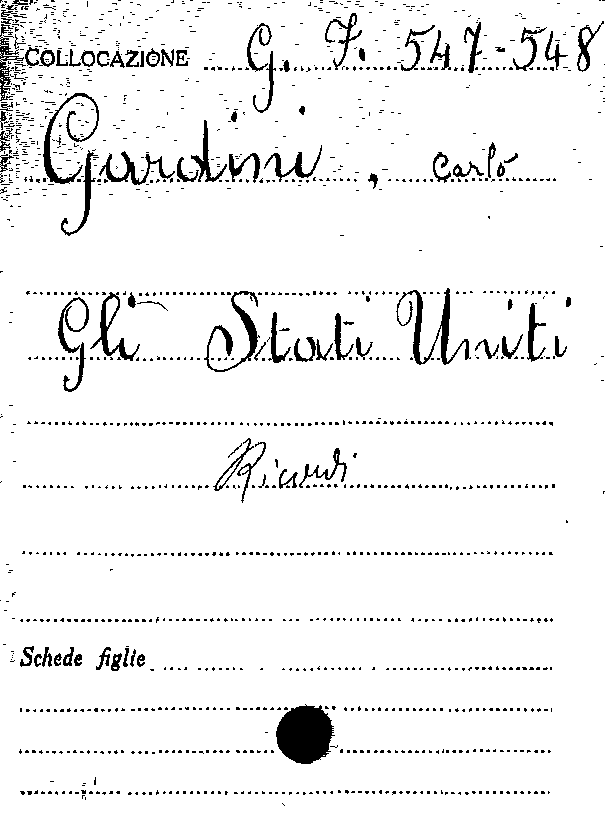 COLLOCAZIONE G. F. 547-548
Gardini, Carlo
Gli Stati Uniti
Ricordi
Schede figlie